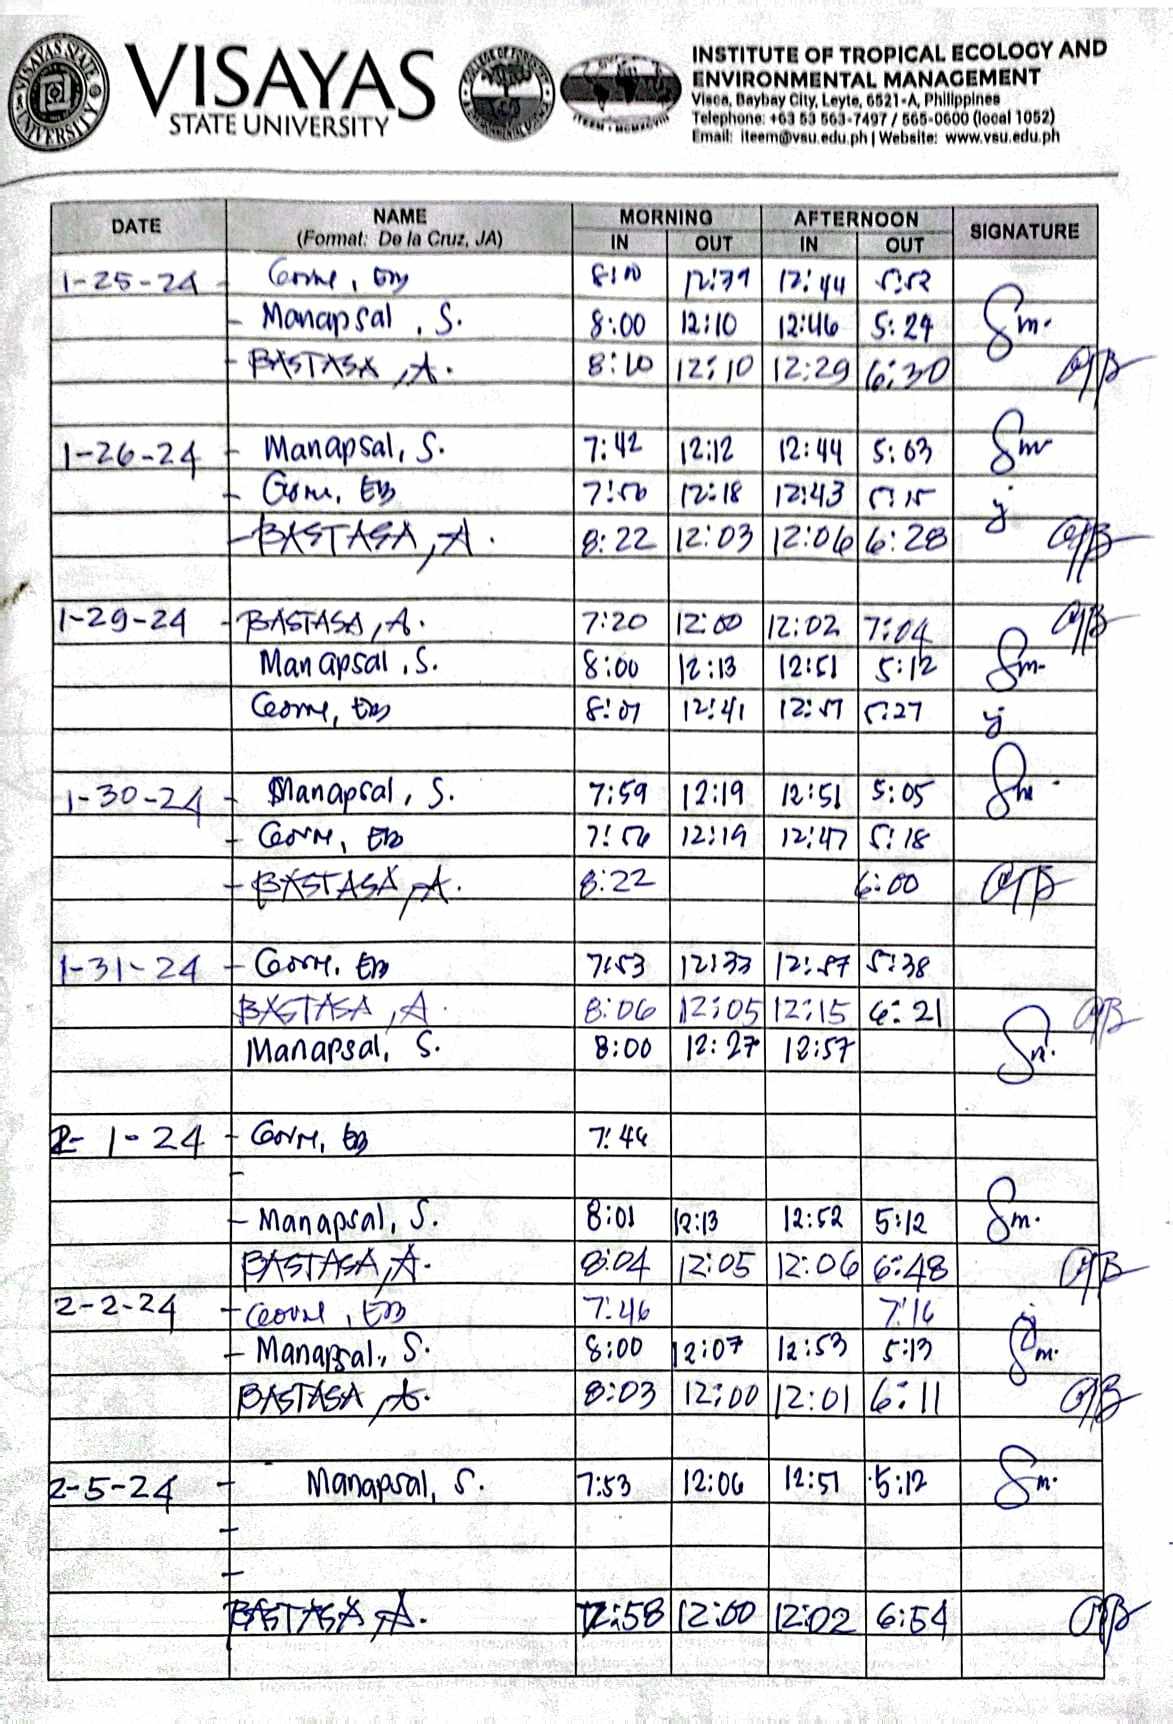 VISAYAS
STATE UNIVERSITY
INSTITUTE OF TROPICAL ECOLOGY AND
ENVIRONMENTAL MANAGEMENT
Visca, Baybay City, Leyte, 6521-A, Philippines
Telephone: +63 53 563-7497 / 565-0600 (local 1052)
Email: iteem@vsu.edu.ph | Website: www.vsu.edu.ph
DATE NAME MORNING AFTERNOON SIGNATURE
(Format: De la Cruz, JA) IN OUT IN OUT
1-25-24 12:44 5:52
- Manapsal, S. 8:00 12:10 12:46 5:29
- BASTASA, A. 8:10 12:10 12:29 6:30
1-26-24 - Manapsal, S. 7:42 12:12 12:44 5:03
- 12:18 12:43 5:15
- BASTASA, A. 8:22 12:03 12:06 6:28
1-29-24 - BASTASA, A. 7:20 12:00 12:02 7:04
Manapsal, S. 8:00 12:13 12:51 5:12
12:41 5:27
1-30-24 - Manapsal, S. 7:59 12:19 12:51 5:05
- 12:19 12:47 5:18
- BASTASA, A. 8:22 6:00
1-31-24 - 7:53 12:33 12:57 5:38
BASTASA, A. 8:06 12:05 12:15 6:21
Manapsal, S. 8:00 12:27 12:57
2-1-24 - 7:46
-
- Manapsal, S. 8:01 12:13 12:52 5:12
BASTASA, A. 8:04 12:05 12:06 6:48
2-2-24 - 7:46 7:16
- Manapsal, S. 8:00 12:07 12:53 5:13
BASTASA, A. 8:03 12:00 12:01 6:11
2-5-24 - Manapsal, S. 7:53 12:06 12:51 5:12
-
-
BASTASA, A. 7:58 12:00 12:02 6:54